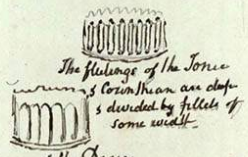 The flutings of the Ionic
& Corinthian are deep
& divided by fillets of
some width.